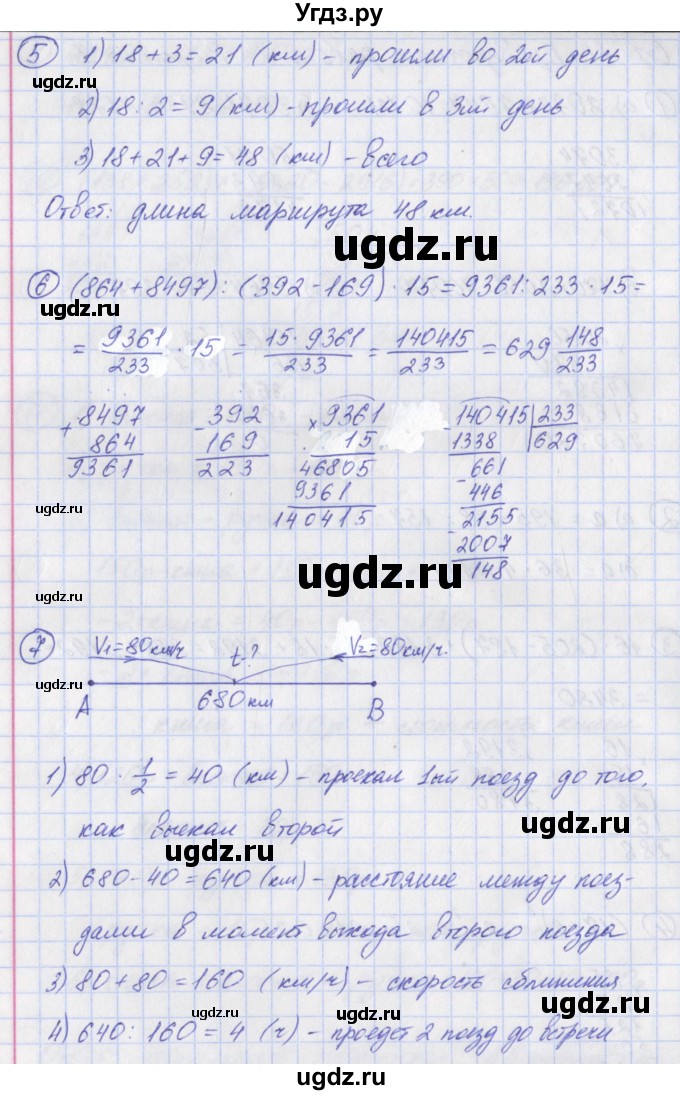 Угдз.ру
5 1) 18 + 3 = 21 (км) - прошли во 2ой день
2) 18 : 2 = 9 (км) - прошли в 3ий день
3) 18 + 21 + 9 = 48 (км) - всего
Ответ: длина маршрута 48 км.
ugdz.ru
ugdz.ru
6 (864 + 8497) : (392 - 169) · 15 = 9361 : 233 · 15 =
ugdz.ru
= 9361/233 · 15 = 15 · 9361/233 = 140415/233 = 629 148/233
ugdz.ru
+ 8497 - 392 × 9361 - 140415 | 233
864 169 15 1338 629
9361 223 46805 - 661
9361 446
140415 - 2155
2007
148
ugdz.ru
ugdz.ru
7 V1=80км/ч t? V2=80км/ч.
ugdz.ru
A 680км B
ugdz.ru
1) 80 · 1/2 = 40 (км) - проехал 1ый поезд до того,
как выехал второй
ugdz.ru
ugdz.ru
2) 680 - 40 = 640 (км) - расстояние между поез-
дами в момент выхода второго поезда
3) 80 + 80 = 160 (км/ч) - скорость сближения
ugdz.ru
4) 640 : 160 = 4 (ч) - проедет 2 поезд до встречи
ugdz.ru
ugdz.ru